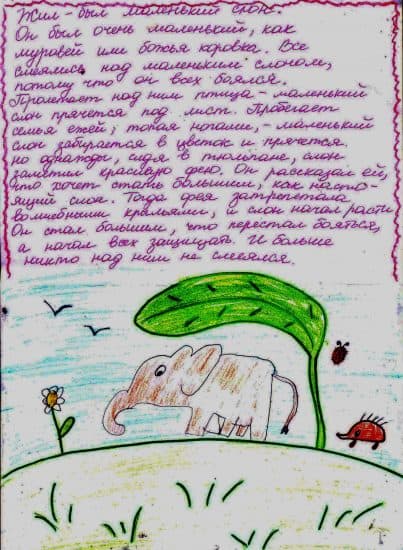 Жил - был маленький слон.
Он был очень маленький, как
муравей или божья коровка. Все
смеялись над маленьким слоном,
потому что он всех боялся.
Пролетает над ним птица - маленький
слон прячется под лист. Пробегает
семья ежей, топая ногами, - маленький
слон забирается в цветок и прячется.
Но однажды, сидя в тюльпане, слон
заметил красивую фею. Он рассказал ей,
что хочет стать большим, как насто-
ящий слон. Тогда фея затрепетала
волшебными крыльями, и слон начал расти.
Он стал большим, что перестал бояться,
а начал всех защищать. И больше
никто над ним не смеялся.